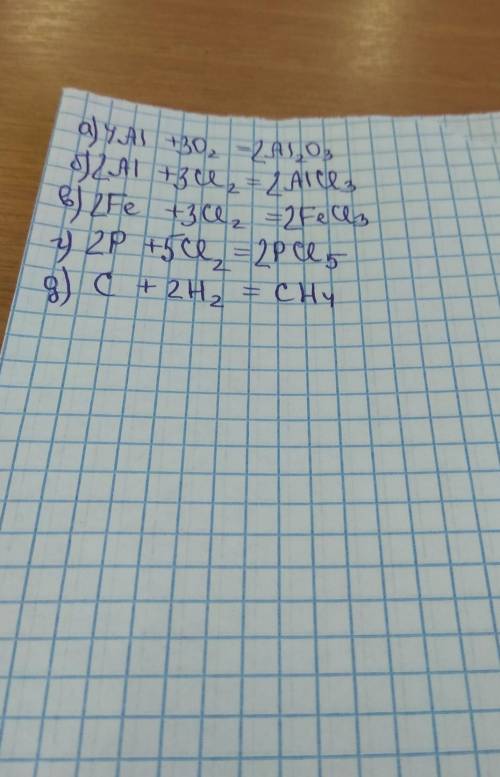 а) 4Al +3O₂ =2Al₂O₃
б) 2Al +3Cl₂ = 2AlCl₃
в) 2Fe +3Cl₂ =2FeCl₃
г) 2P +5Cl₂ = 2PCl₅
д) C + 2H₂ = CH₄